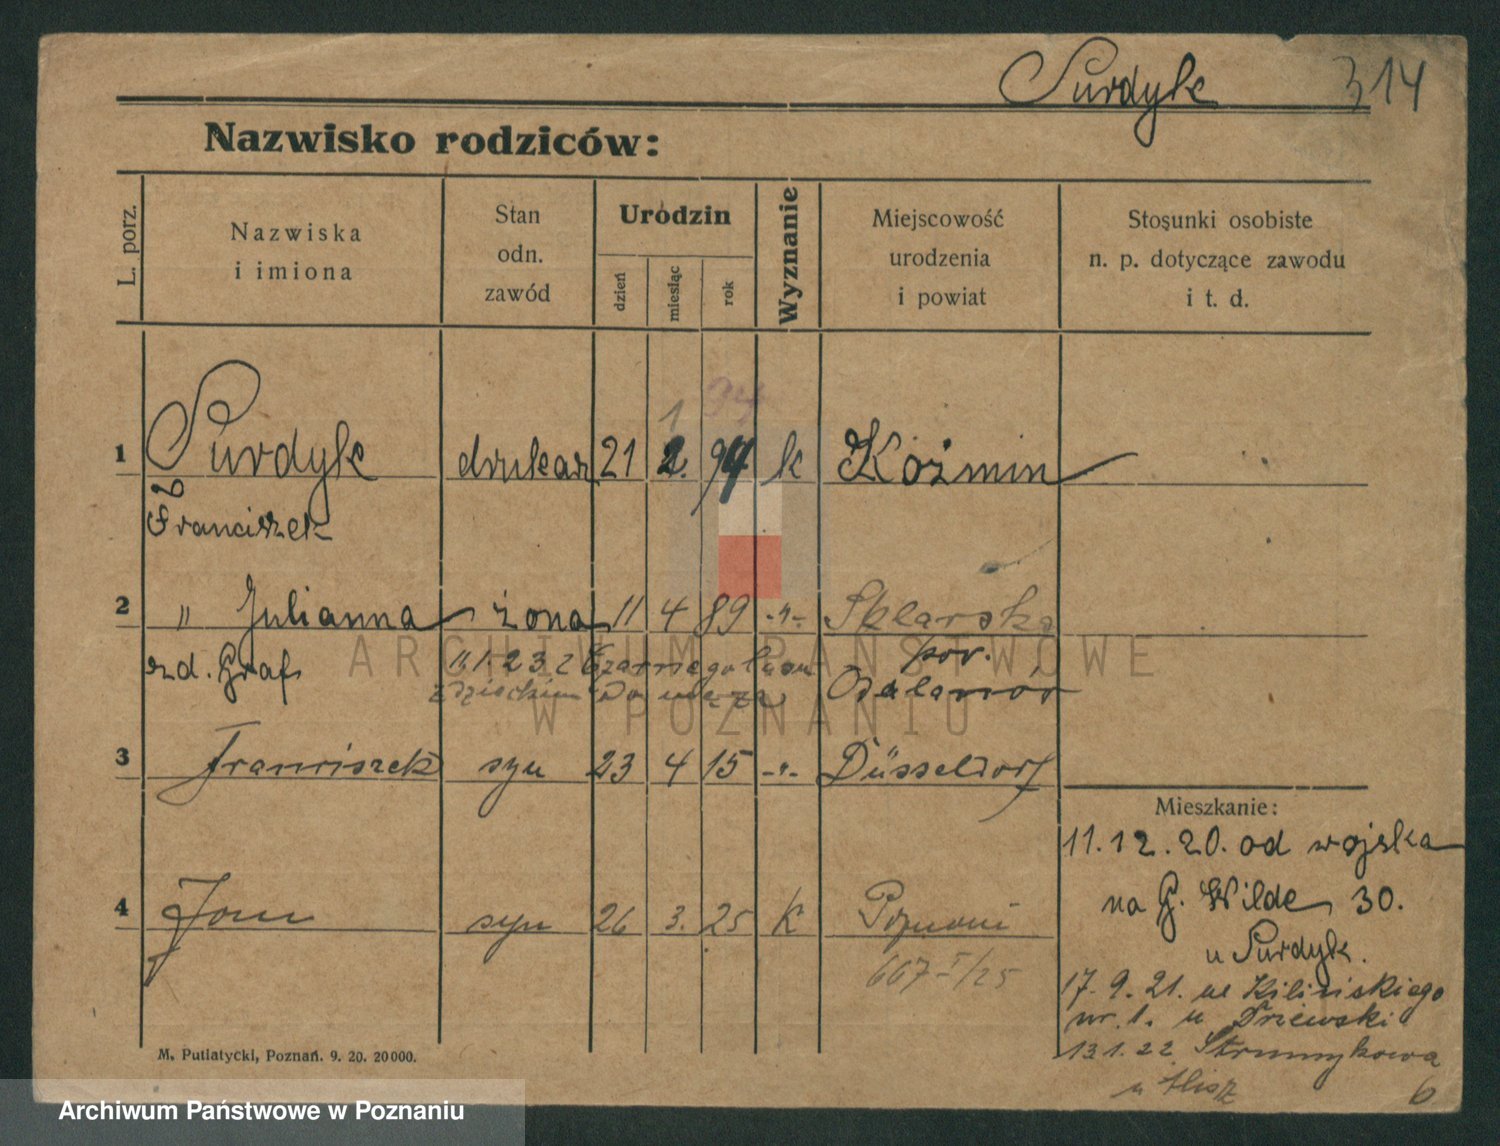 Surdyk 314
Nazwisko rodziców:
L. porz.
Nazwiska
i imiona
Stan
odn.
zawód
Urodzin
dzień
miesiąc
rok
Wyznanie
Miejscowość
urodzenia
i powiat
Stosunki osobiste
n. p. dotyczące zawodu
i t. d.
94
1
1 Surdyk drukarz 21 2. 94 k Koźmin
Franciszek
2 " Julianna żona 11 4 89 -"- Sklarska
zd. Graf 11.1.23 z Czarnego pow.
z dzieckiem do męża Odolanów
3 Franciszek syn 23 4 15 -"- Düsseldorf
4 Jan syn 26 3. 25 K Poznań
667-I/25
Mieszkanie:
11.12.20. od wojska
na G. Wilde 30.
u Surdyk.
17.9.21. ul Kilińskiego
nr. 1. u
13.1.22 Strumykowa
u
6
M. Putiatycki, Poznań. 9. 20. 20000.
ARCHIWUM PAŃSTWOWE
W POZNANIU
Archiwum Państwowe w Poznaniu